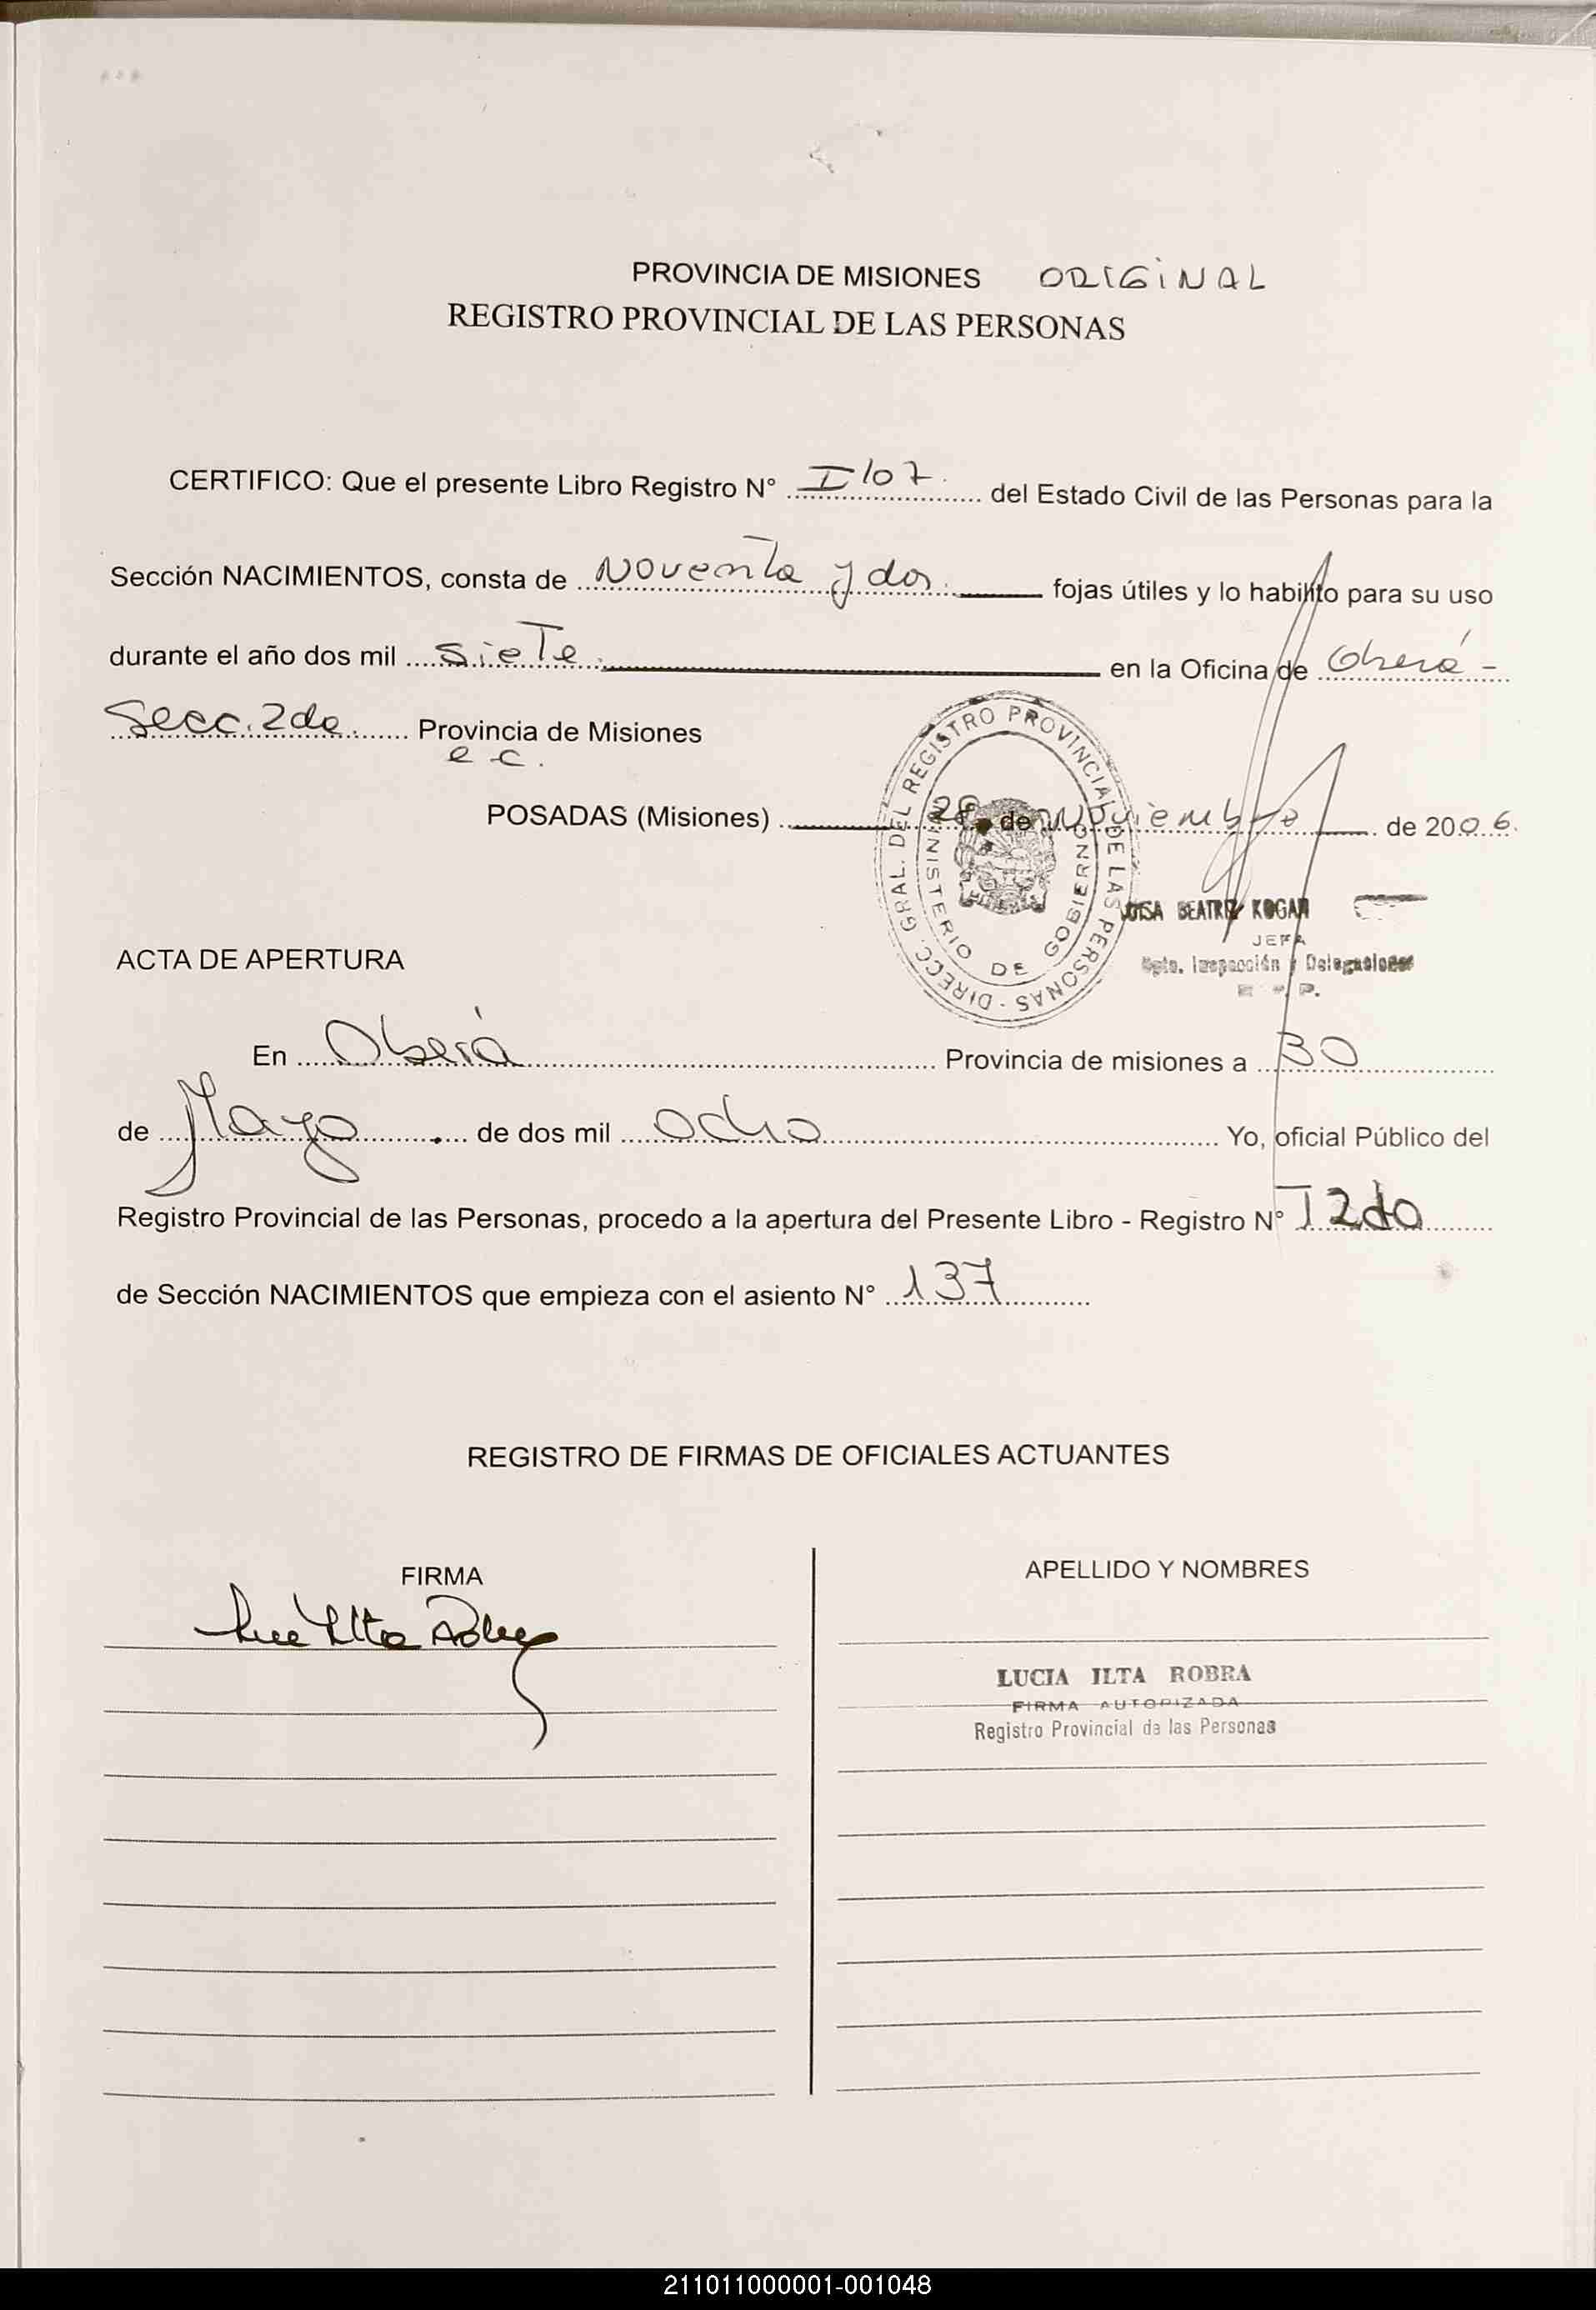 PROVINCIA DE MISIONES ORIGINAL
REGISTRO PROVINCIAL DE LAS PERSONAS
CERTIFICO: Que el presente Libro Registro N° I/07. del Estado Civil de las Personas para la
Sección NACIMIENTOS, consta de Noventa y dos. fojas útiles y lo habilito para su uso
durante el año dos mil siete. en la Oficina de Oberá -
Secc. 2da. Provincia de Misiones
e c.
POSADAS (Misiones) de Noviembre de 2006.
DIRECC. GRAL. DEL REGISTRO PROVINCIAL DE LAS PERSONAS -
MINISTERIO DE GOBIERNO
BEATRIZ KOGAN
JEFA
Dpto. Inspección y Delegaciones
ACTA DE APERTURA
En Oberá Provincia de misiones a 30
de Mayo de dos mil ocho Yo, oficial Público del
Registro Provincial de las Personas, procedo a la apertura del Presente Libro - Registro N° T 2do
de Sección NACIMIENTOS que empieza con el asiento N° 137
REGISTRO DE FIRMAS DE OFICIALES ACTUANTES
FIRMA APELLIDO Y NOMBRES
LUCIA ILTA ROBRA
FIRMA AUTORIZADA
Registro Provincial de las Personas
211011000001-001048